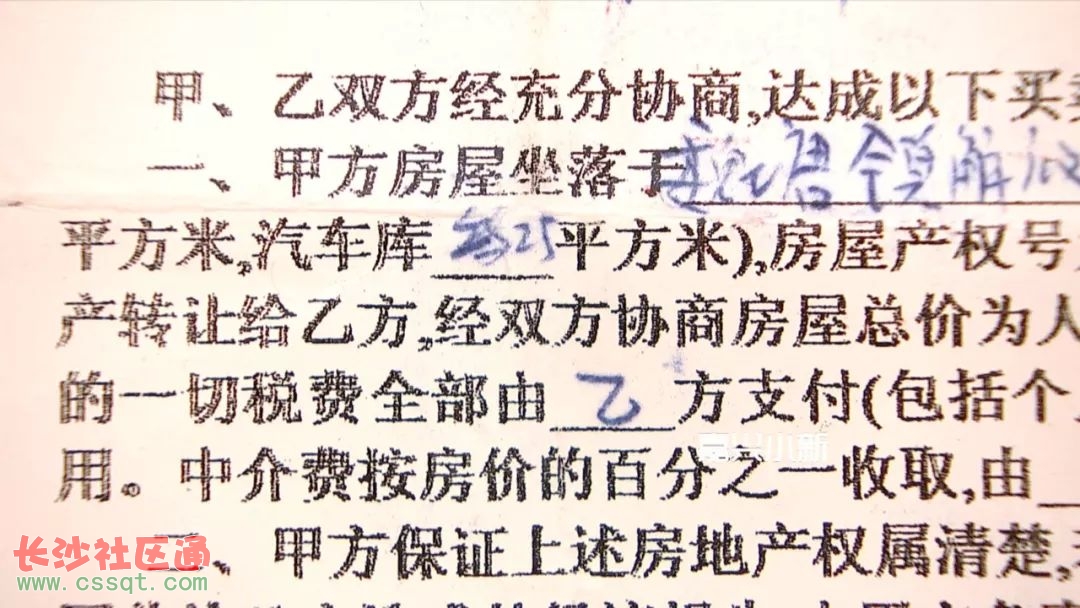 甲、乙双方经充分协商,达成以下买
一、甲方房屋坐落于
平方米,汽车库 25平方米),房屋产权号
产转让给乙方,经双方协商房屋总价为人
的一切税费全部由乙方支付(包括个
用。中介费按房价的百分之一收取,由
二、甲方保证上述房地产权属清楚,
小新
长沙社区通
www.cssqt.com